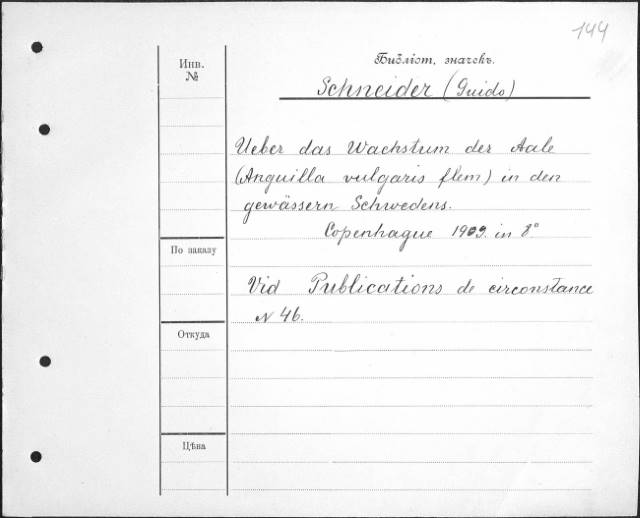 144
Библіот. значекъ.
Инв.
№
Schneider (Guido)
Ueber das Wachstum der Aale
(Anguilla vulgaris flem) in den
gewässern Schwedens.
Copenhague 1909. in 8°
По заказу
Vid Publications de circonstance
N 46.
Откуда
Цѣна